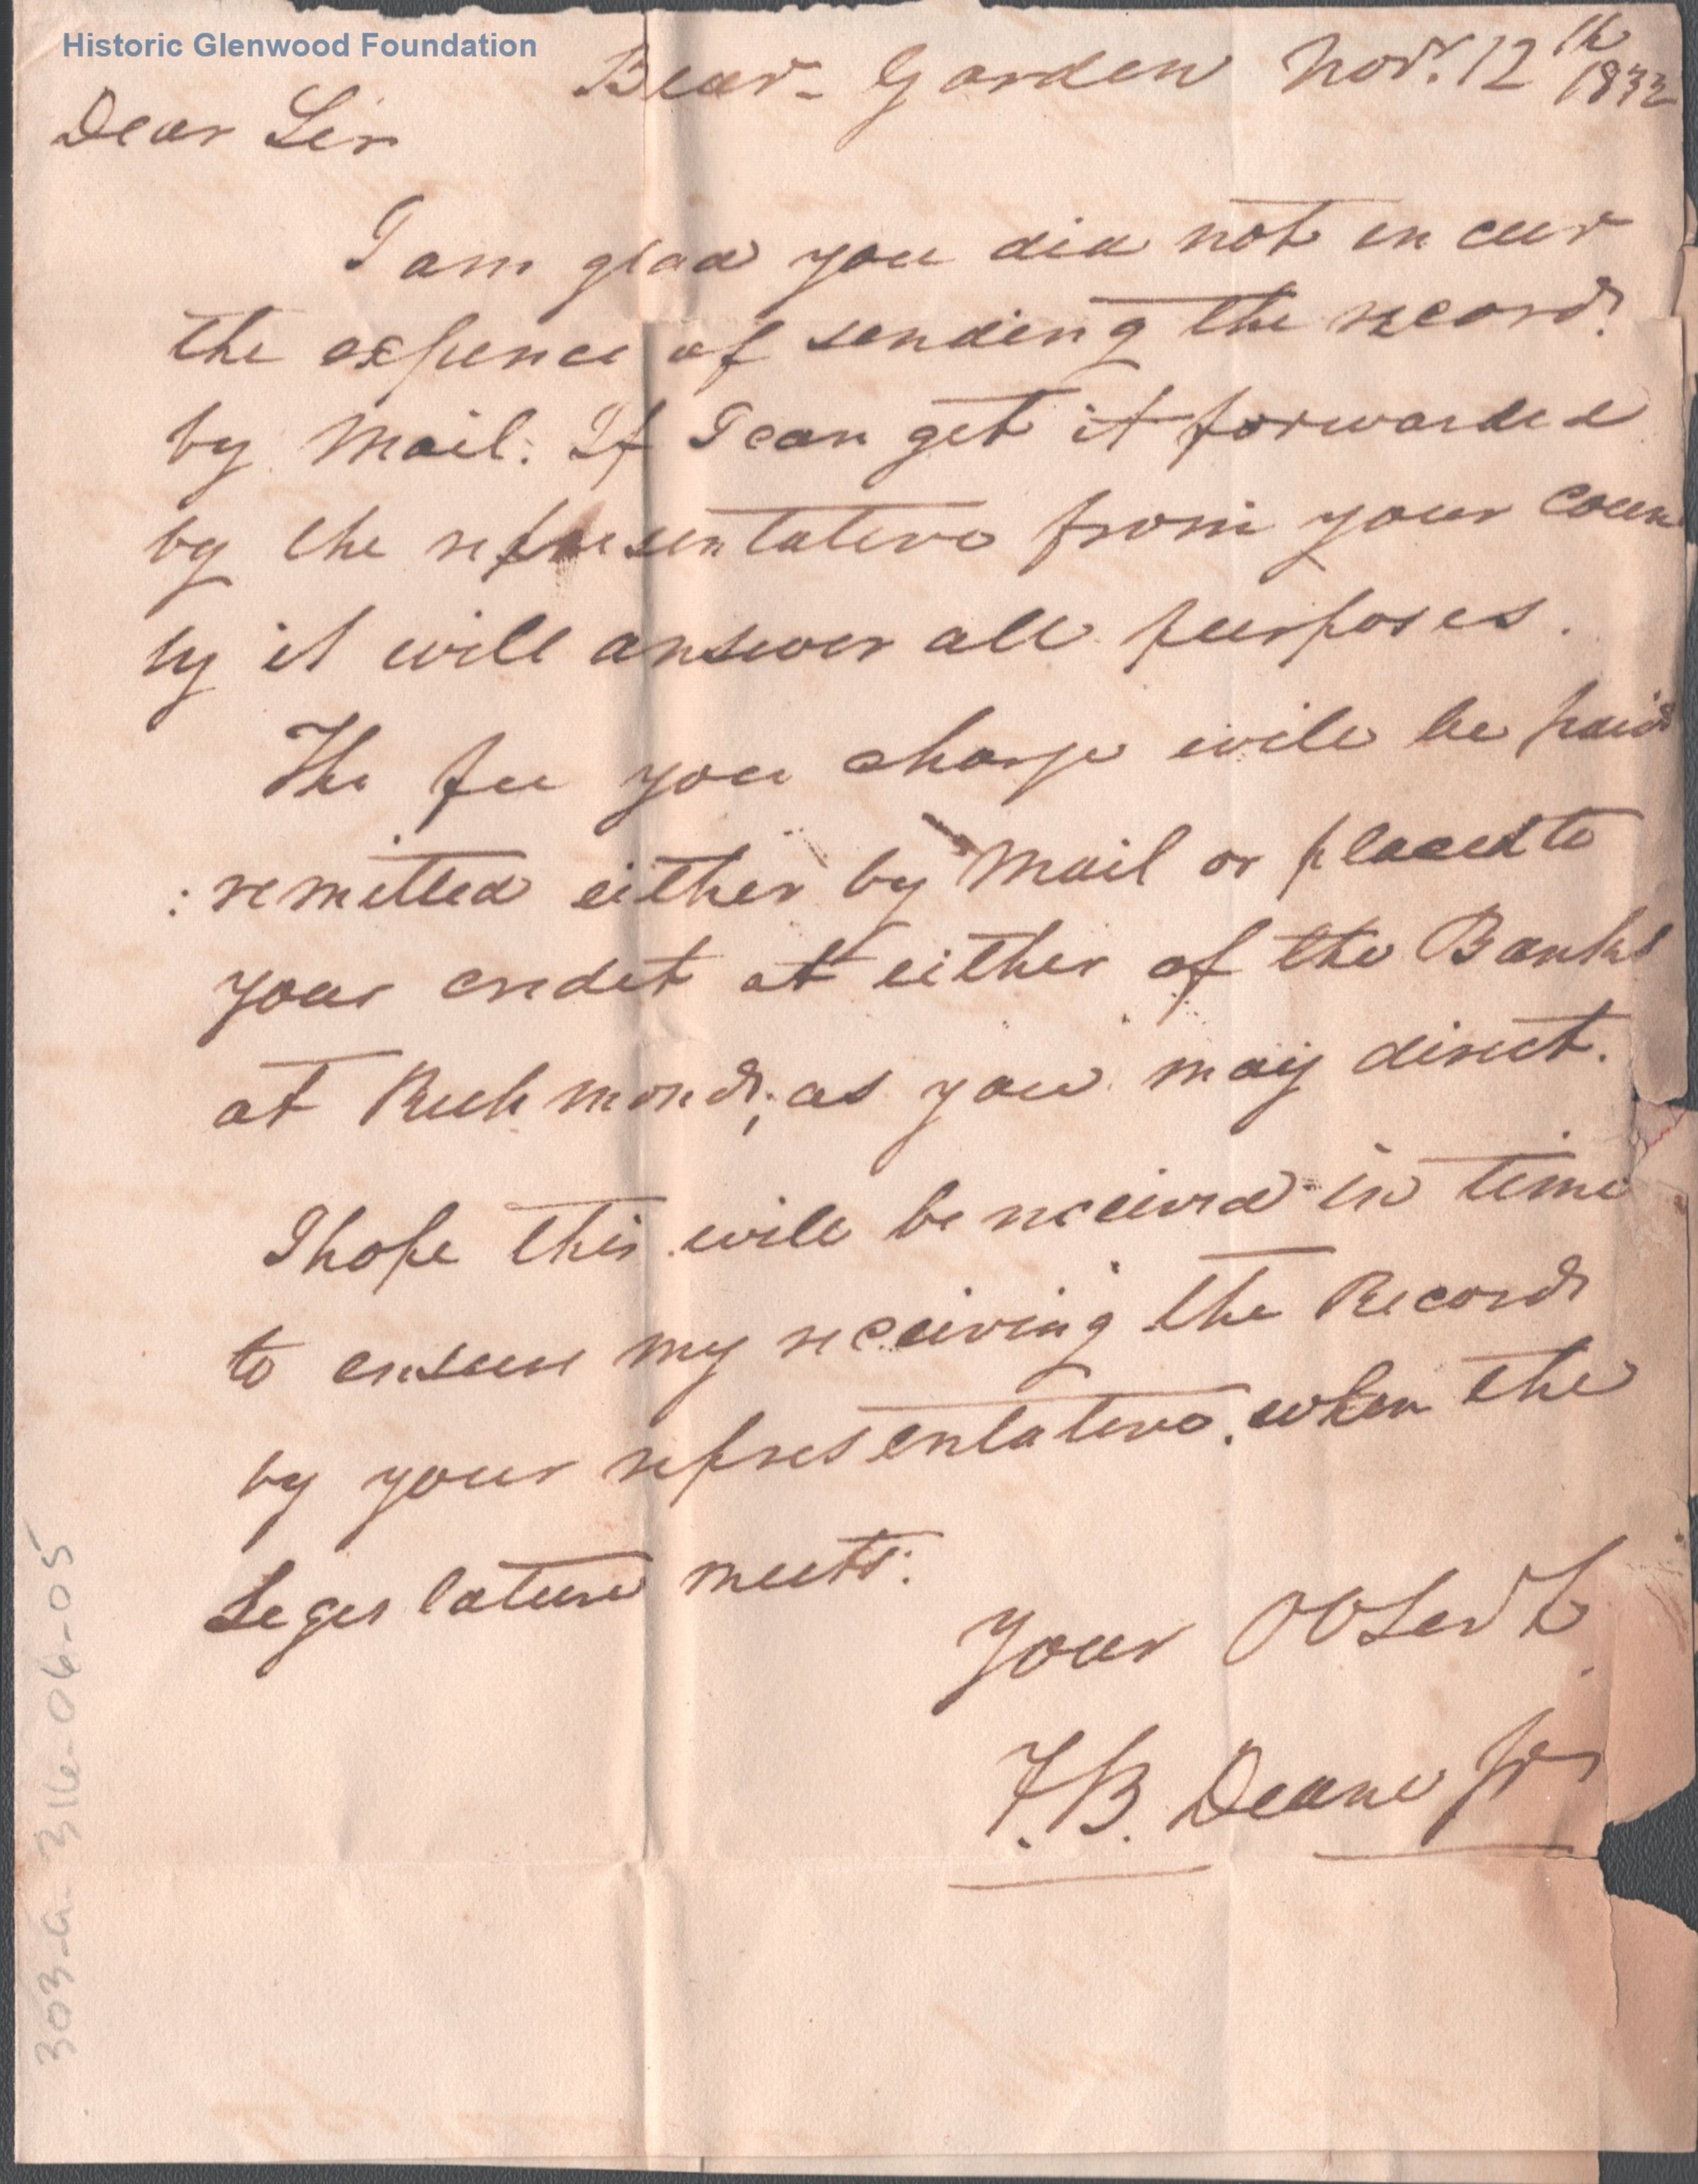 Historic Glenwood Foundation
Bear-Garden Novr. 12th
1832
Dear Sir
I am glad you did not in cur
the expence of sending the record
by Mail: If I can get it forwarded
by the representative from your Coun
ty it will answer all purposes.
The fee you charge will be paid
: remitted either by Mail or placed to
your credit at either of the Banks
at Richmond; as you may direct.
I hope this will be received in time
to ensure my receiving the Record
by your representative. when the
Legislature meets:
Your Ob Servt
F.B. Deane Jr
303-a-316-06-05